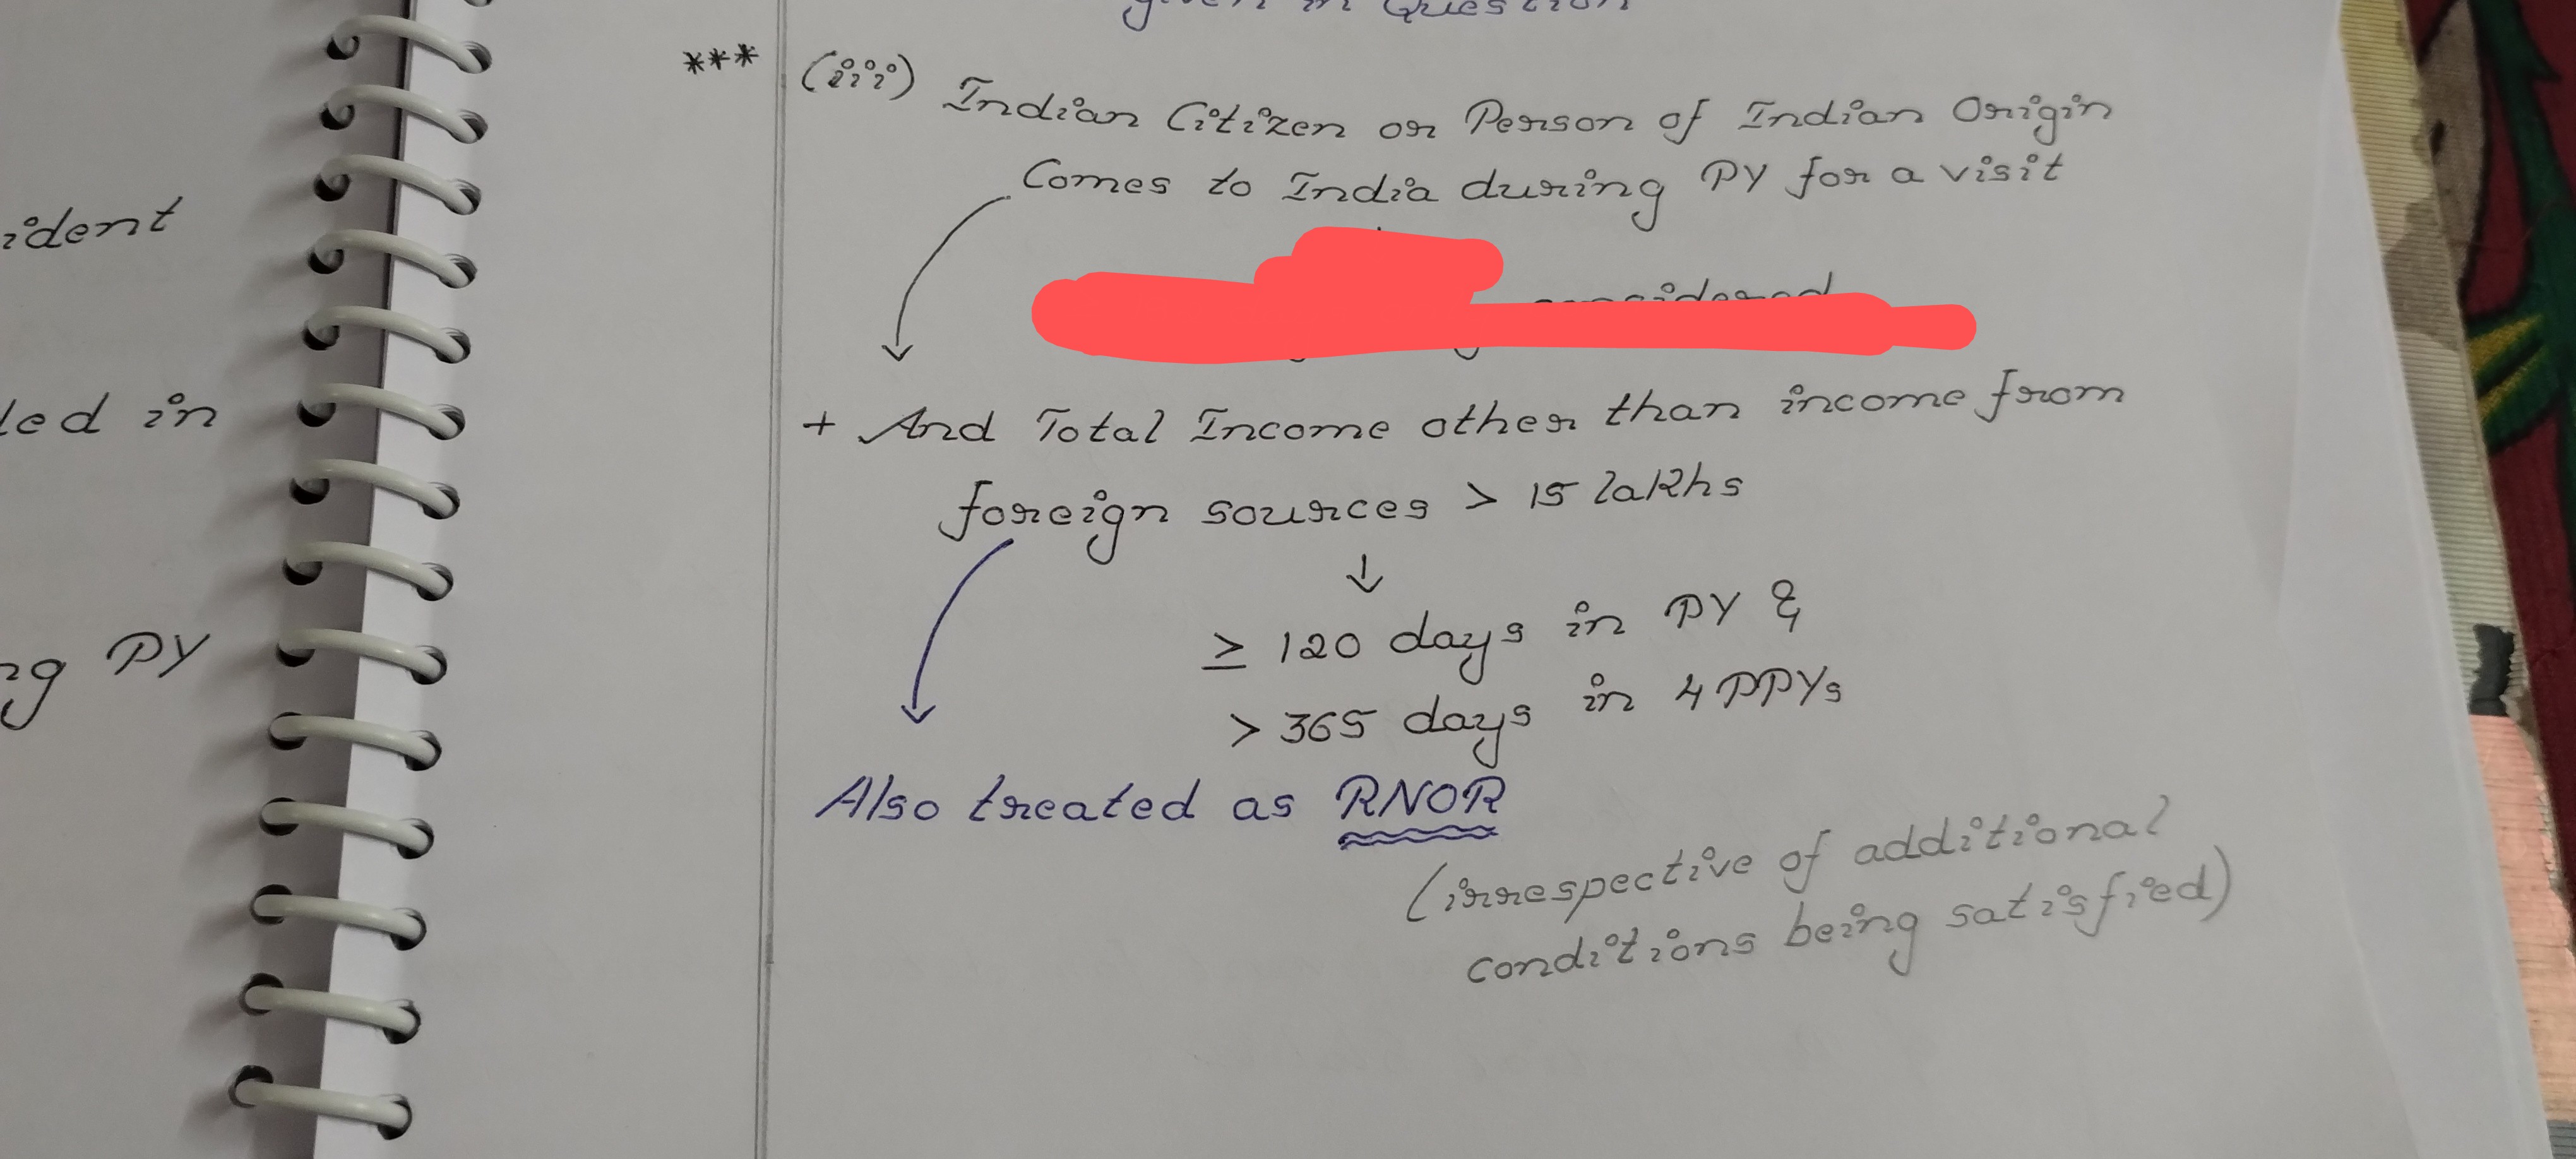 given in Question
*** (iii) Indian Citizen or Person of Indian Origin
Comes to India during PY for a visit
considered
+ And Total Income other than income from
foreign sources > 15 lakhs
↓
≥ 120 days in PY &
> 365 days in 4 PPYs
Also treated as RNOR
(irrespective of additional
conditions being satisfied)
ident
led in
ng PY